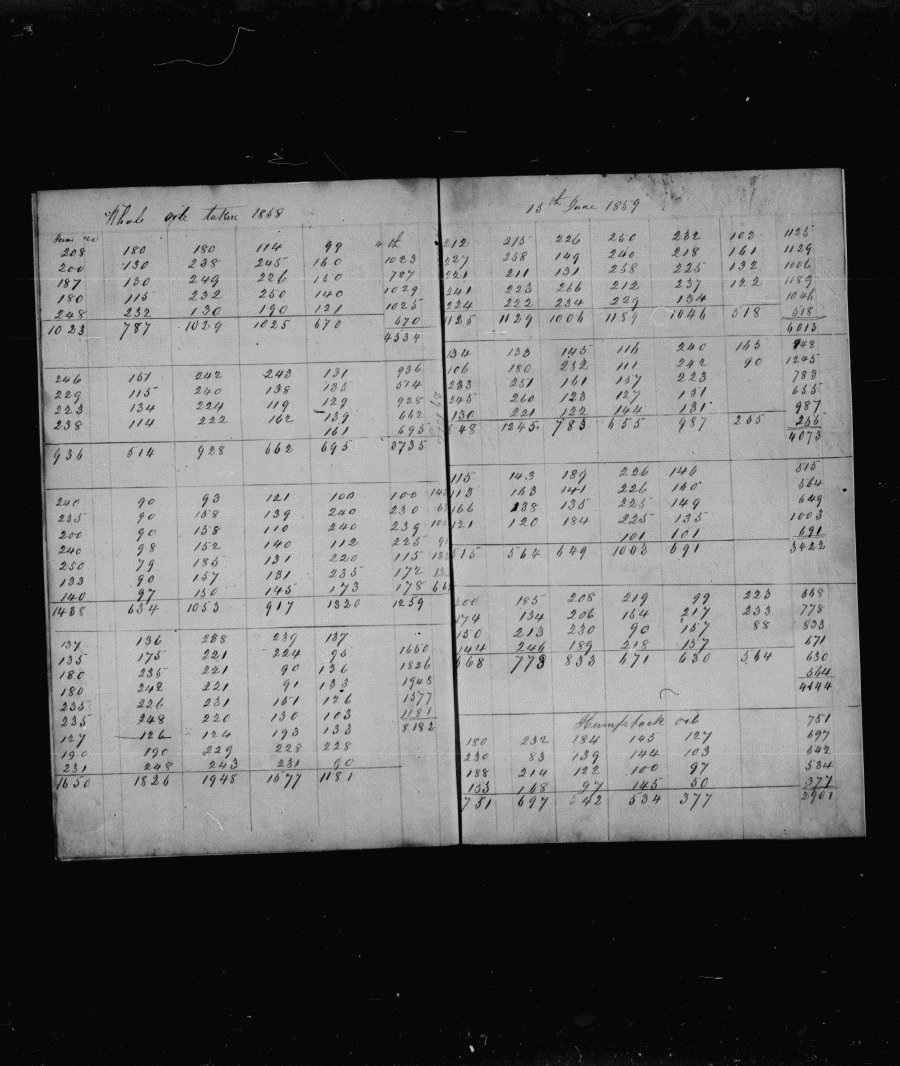 Whale oil taken 1858
208 180 180 114 99 1023
200 130 238 245 160 787
187 130 249 226 150 1029
180 115 232 250 140 1025
248 232 130 190 121 670
1023 787 1029 1025 670 4534
246 151 242 243 131 936
229 115 240 138 135 514
223 134 224 119 129 928
238 114 222 162 139 662
161 695
936 514 928 662 695 3735
240 90 93 121 100 100
235 90 158 139 240 230
200 90 158 110 240 239
240 98 152 140 112 225
250 79 185 131 220 115
133 90 157 131 235 172
140 97 150 145 173 178
1438 634 1053 917 1320 1259
137 136 238 239 137
135 175 221 224 95 1650
180 235 221 90 136 1826
180 248 221 91 133 1948
235 226 231 151 126 1577
235 248 220 130 103 1181
127 126 124 193 133 8182
190 190 229 228 228
231 248 243 231 90
1650 1826 1948 1577 1181
15th June 1859
212 215 226 250 232 103 1125
227 258 149 240 218 161 1129
221 211 131 258 225 132 1006
241 223 266 212 237 122 1189
224 222 234 229 134 1046
1125 1129 1006 1189 1046 518 518
6013
134 133 145 116 240 165 848
106 180 232 111 242 90 1245
233 251 161 157 223 783
245 260 123 127 151 655
130 221 122 144 131 987
848 1245 783 655 987 255 255
4073
115 143 189 226 146 515
113 163 141 226 160 564
166 138 135 225 149 649
121 120 184 225 135 1003
101 101 691
515 564 649 1003 691 3422
200 185 208 219 99 223 668
174 134 206 154 217 233 778
150 213 230 90 157 88 833
144 246 189 218 157 671
668 778 833 671 630 564 630
564
4144
Humpback oil 751
180 232 184 145 127 697
230 83 139 144 103 542
188 214 122 100 97 534
153 168 97 145 50 377
751 697 542 534 377 2901